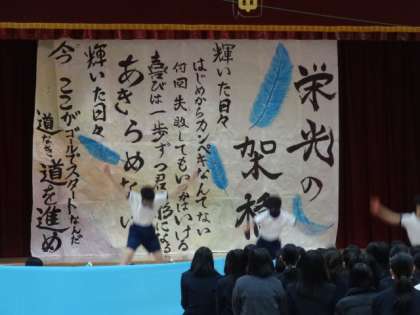 中
栄光の
架橋
輝いた日々
はじめからカンペキなんてない
何回失敗してもいつかはいける
喜びは一歩ずつ君になる
あきらめない
輝いた日々
今 ここがゴールでスタートなんだ
道なき道を進め